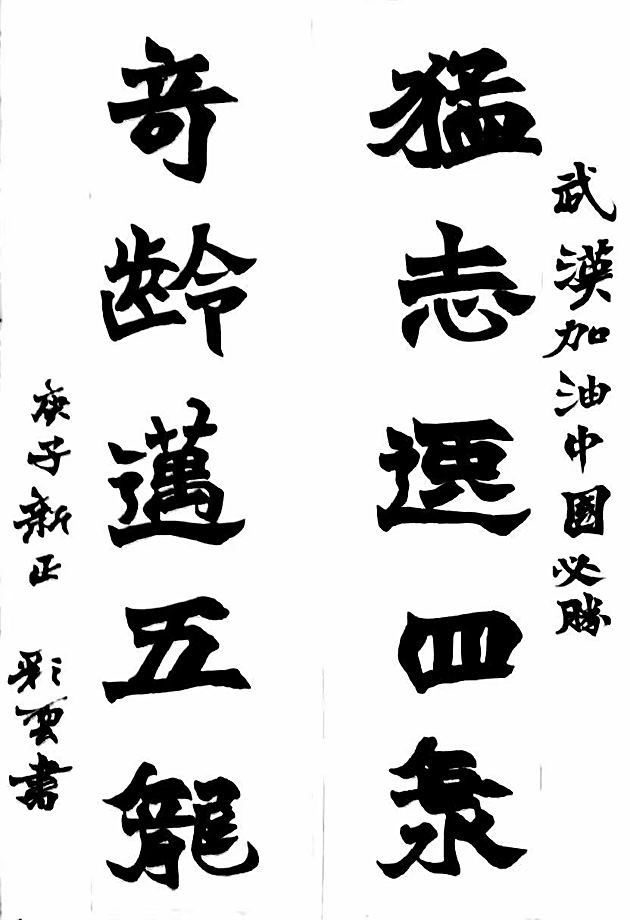 武漢加油中國必勝
猛志逸四海
奇齡邁五龍
庚子新正 彩雲書